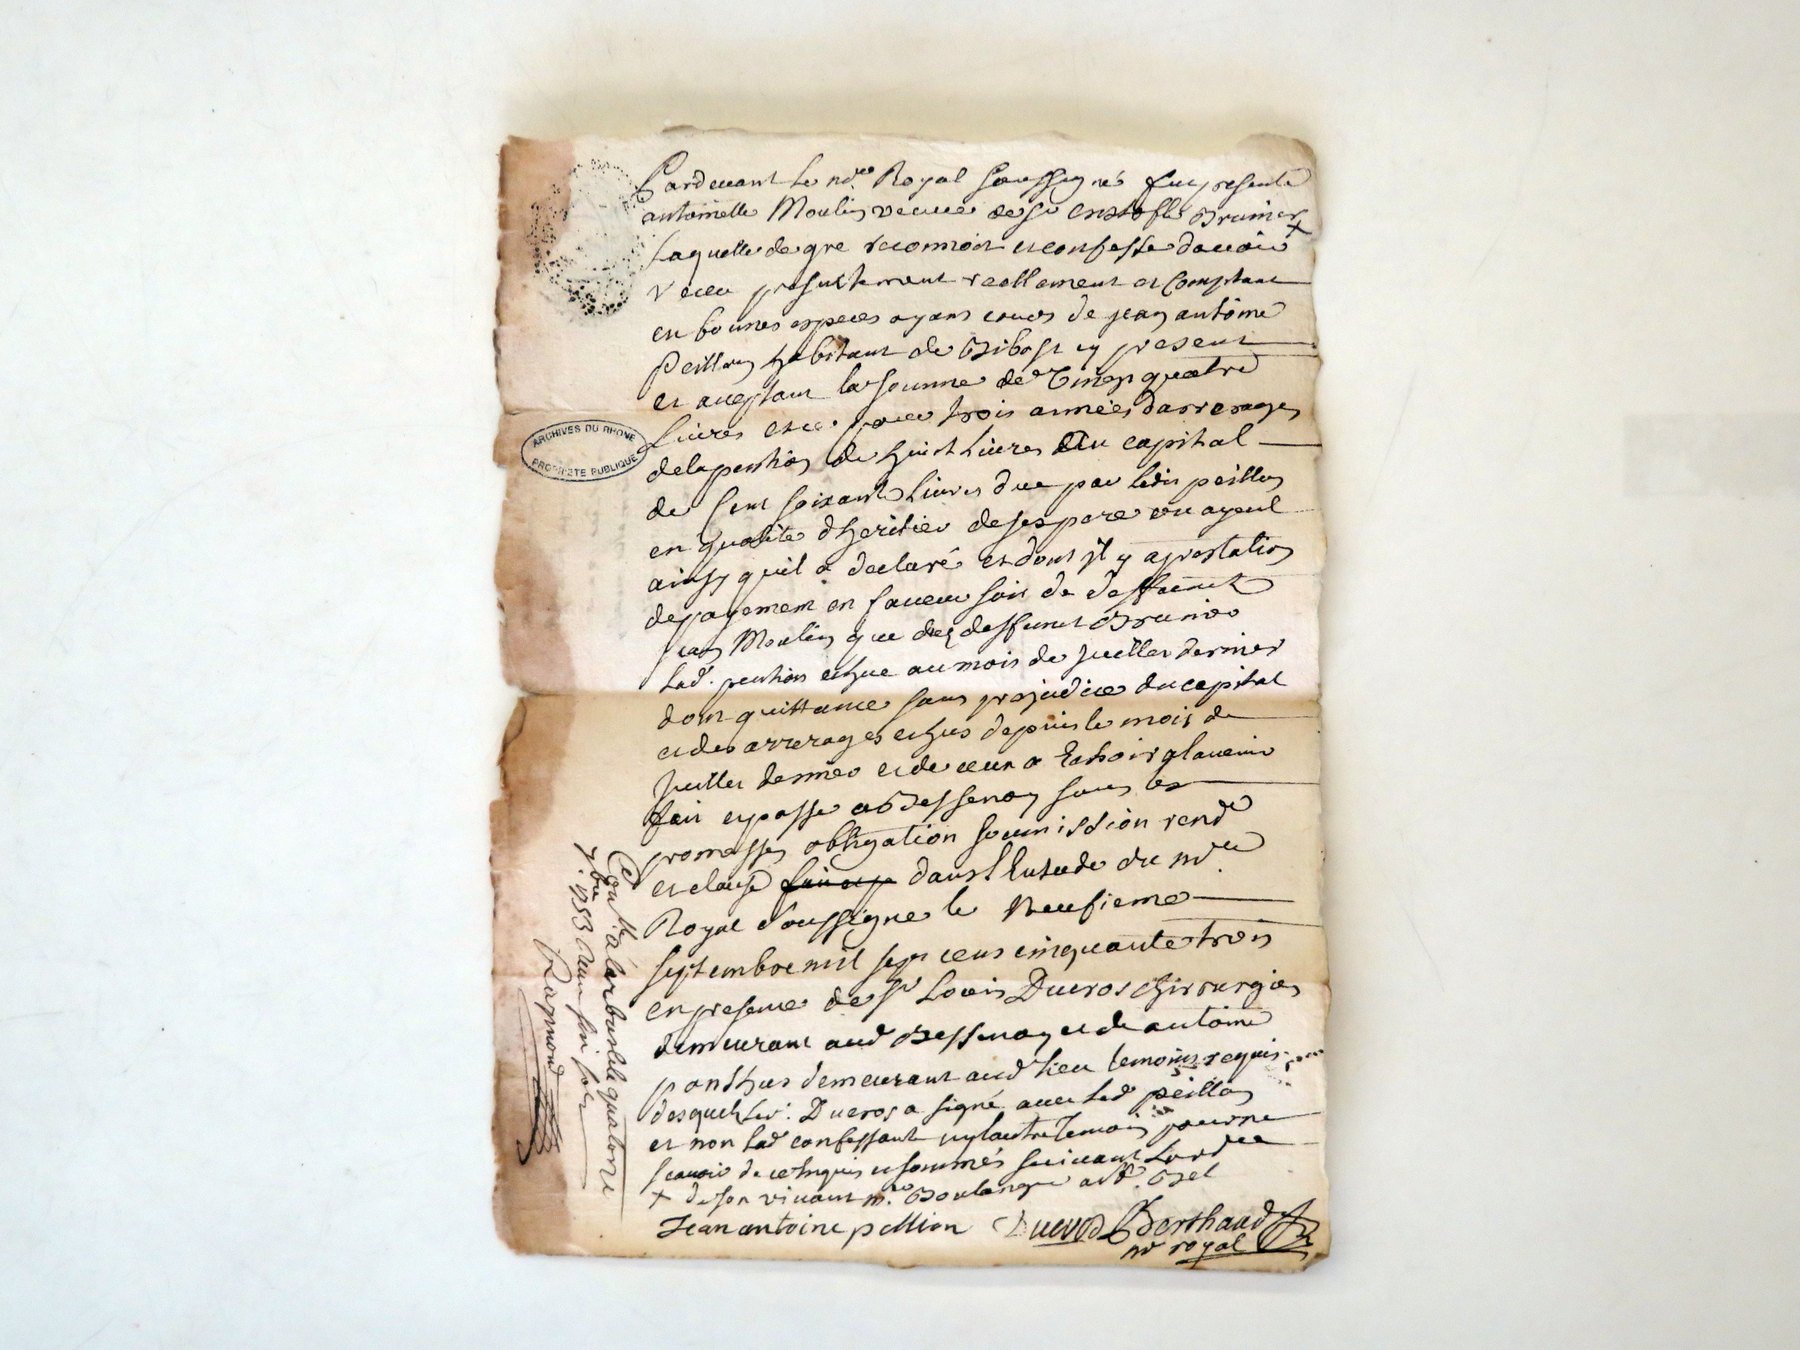 Pardevant le no.re Royal soussigné fut presente
antoinette Moulin veuve de sr cristofle Brunier +
Laquelle de gre reconnoit et confesse davoir
receu presentement reellement et Comptant
en bonnes especes ayant cours de jean antoine
Peillon habitant de Bibost cy present
et aceptant la somme de Vingt quatre
Livres et ce pour trois années darrerages
de la pention de huit Livres du capital
de Cent soixante Livres due par ledit peillon
en qualité dheritier de ses pere ou ayeul
ainsy quil a declaré et dont jl y a prestation
de payement en faveur soit de deffunt
jean Moulin que dud deffunt Brunier
Lad. pention echue au mois de juillet dernier
dont quittance sans prejudice du capital
et des arrerages echus depuis le mois de
Juillet dernier et de ceux a Echoir a lavenir
fait et passe a Bessenay sous les
promesses obligation soumission rend.
et clause fait et p dans l'Estude du no.re
Royal soussigne le Neufieme
septembre mil sept cens cinquante trois
en presence de sr Louis Ducros chirurgien
demeurant aud Bessenay et de antoine
ponthus demeurant aud lieu temoins requis
desquels led. Ducros a signé avec led peillon
et non lad confessant ny lautre temoin pour ne
scavoir de ce enquis et sommés suivant Lord.ce
+ de son vivant m.e Boulanger
Jean antoine pellion Ducros Berthaud
no.re royal
Con.lle a larbresle le quatorze
7bre 1753
Raymond
ARCHIVES DU RHONE
PROPRIETE PUBLIQUE